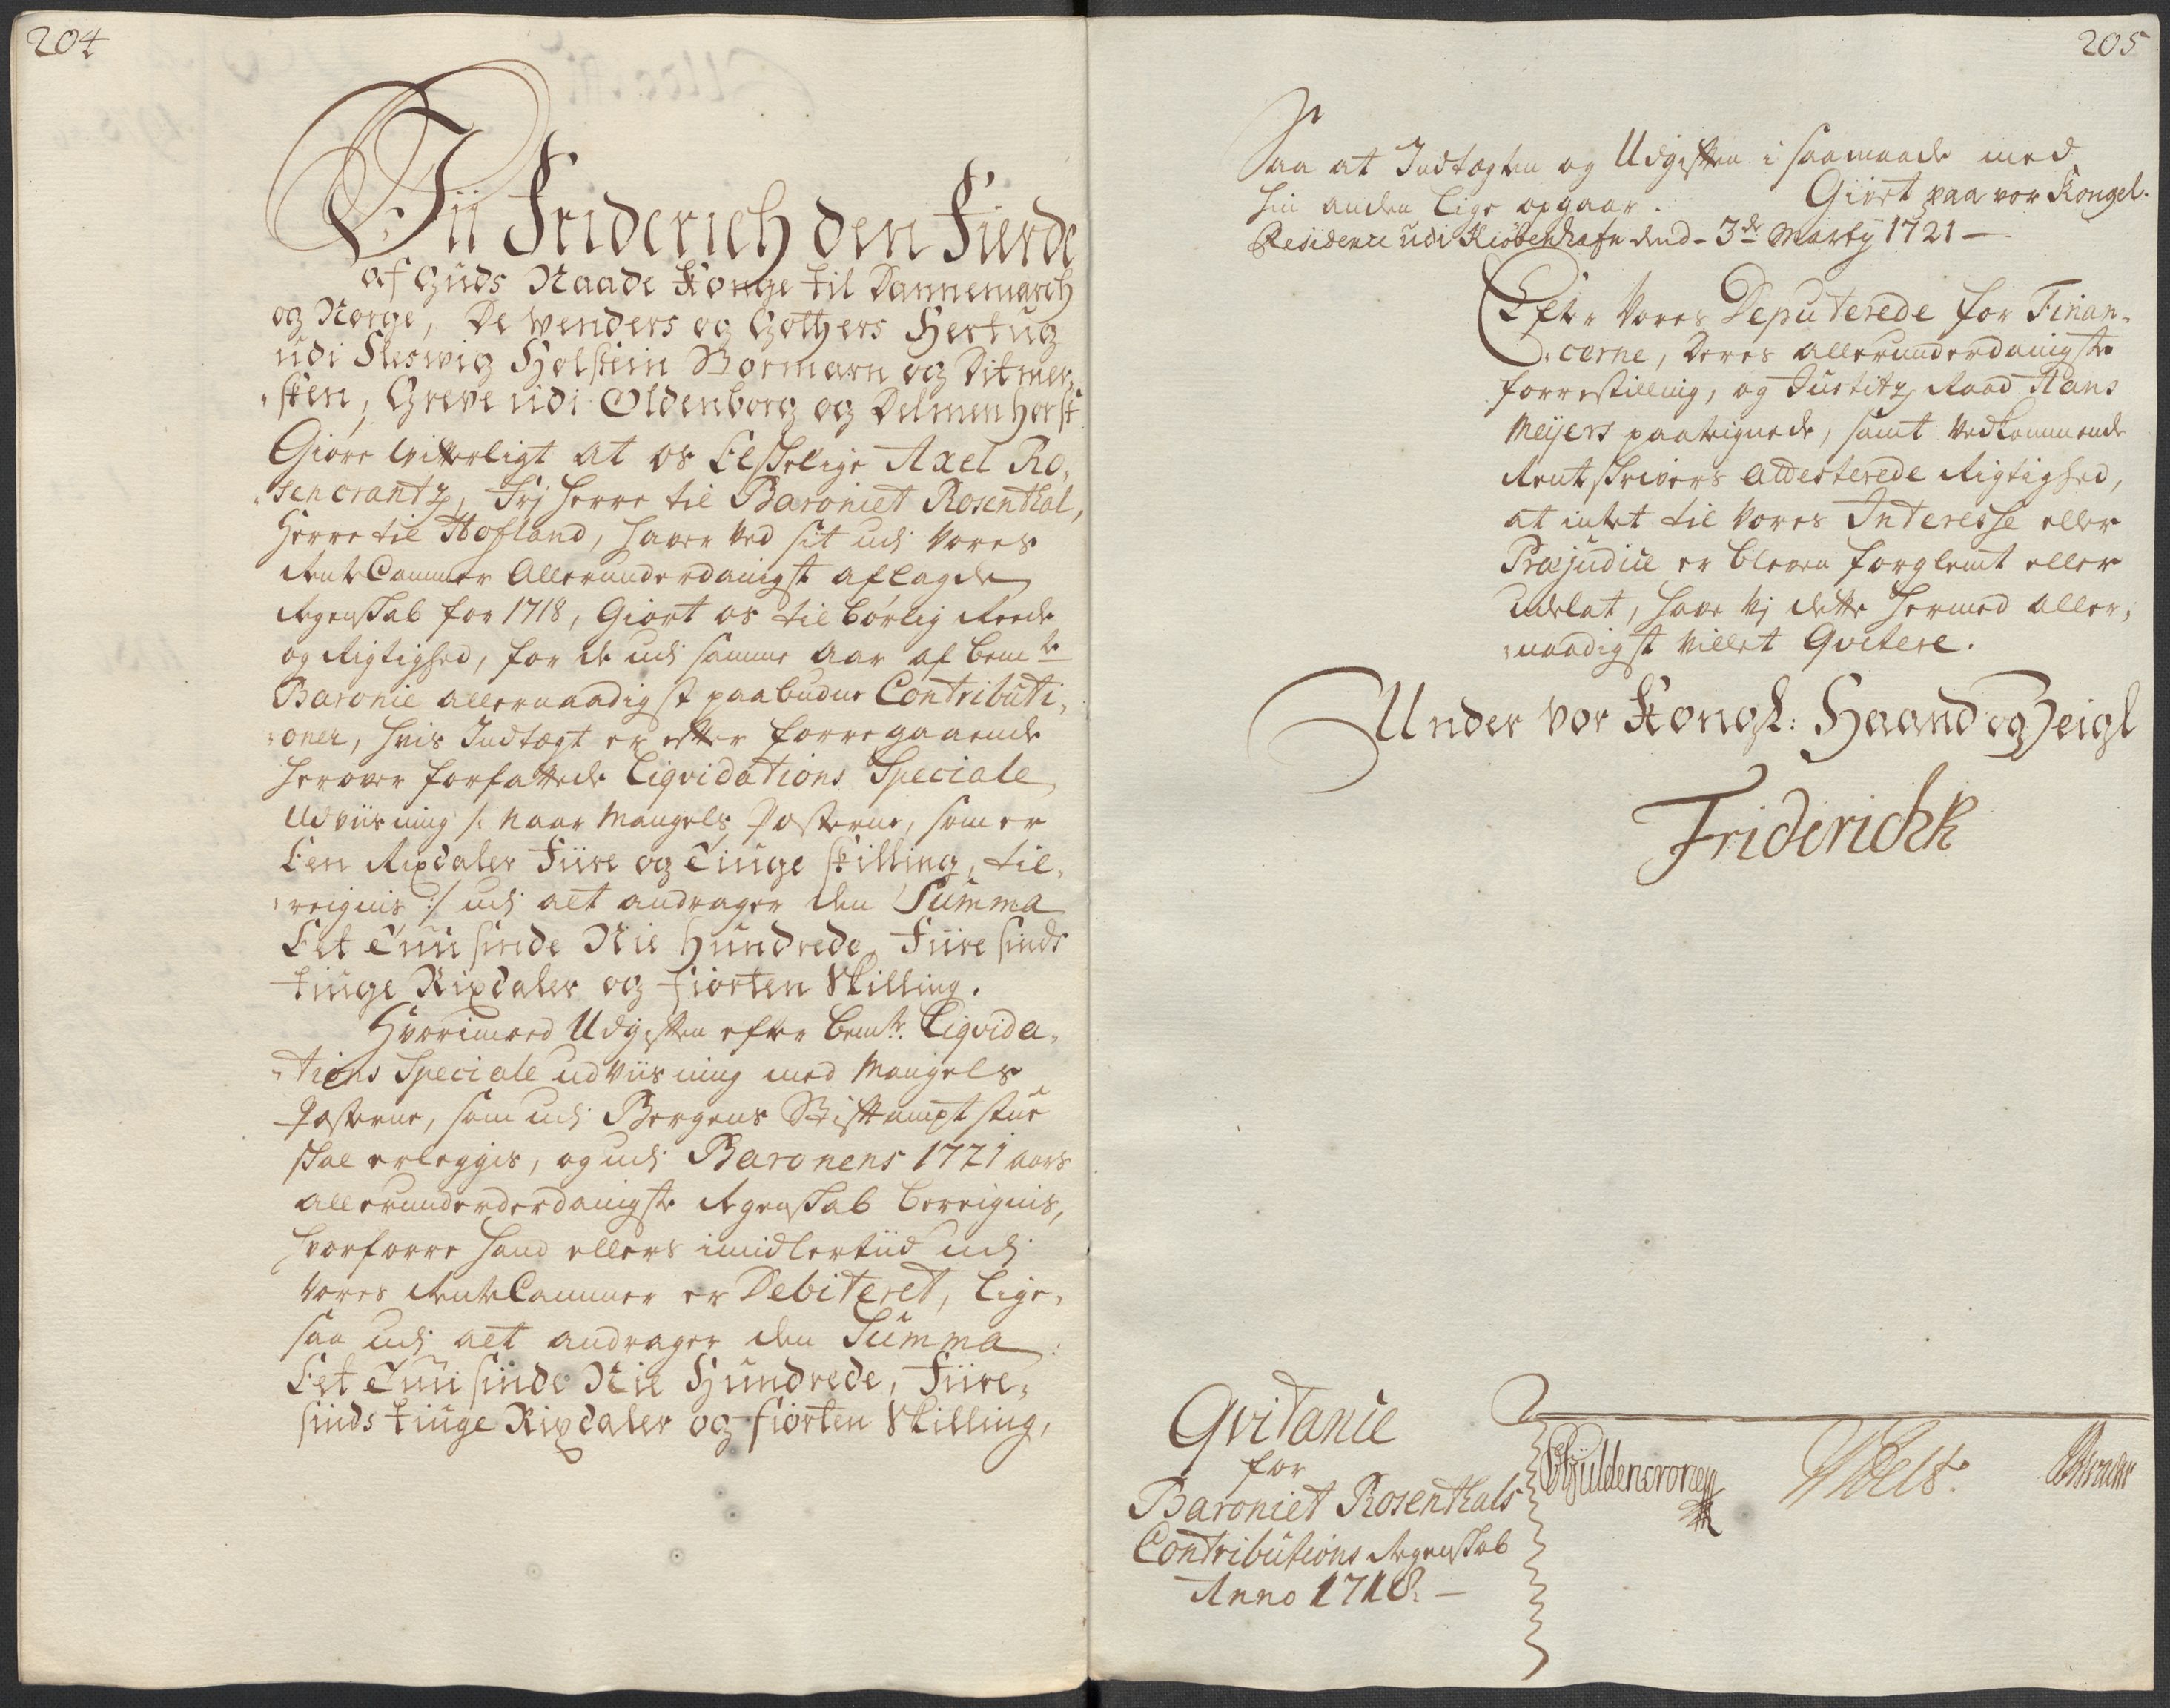 204
Vii Friderich den Fierde
af Guds Naade Konge til Dannemarch
og Norge, De Wenders og Gothers Hertug
udi Sleswig Holstein Stormarn og Ditmer,
,sken, Greve udi Oldenborg og Delmenhorst
Giøre Witterligt at os Elskelige Axel Ro,
,sencrantz, Frj Herre til Baroniet Rosenthal,
Herre til Hofland, haver ved sit udj Vores
RenteCammer Allerunderdanigst aflagde
Regenskab for 1718, Giort os til børlig Reede
og Rigtighed, for de udj samme Aar af bemte
Baronie allernaadigst paabudne Contributi,
,oner, hvis Indtægt er efter forregaaende
herover forfattede Liqvidations Speciale
Udviisning /: naar Mangels Posterne, som er
Een Rixdaler Fiire og Tiuge skilling, til,
,reignis :/ udj alt andrager den Summa
Eet Tuusinde Nie Hundrede, Fiire sinds
tiuge Rixdaler og fiorten Skilling.
Hvorimoed Udgiften efter bemte Liqvida,
,tions Speciale udviisning med Mangels
Posterne, som udj Bergens Stiftampt stue
skal erleggis, og udj Baronens 1721 aars
allerunderderdanigste Regenskab bereignis,
hvorforre hand ellers imidlertiid udj
Vores RenteCammer er Debiteret, lige,
saa udj alt andrager den Summa:
Eet Tuusinde Nie Hundrede, Fiire,
sinds tiuge Rixdaler og fiorten Skilling,
205
Saa at Indtægten og Udgiften i saamaade med
hin anden lige opgaar. Givet paa vor Kongel.
Residence udi Kiøbenhafn dend 3de Marty 1721 —
Efter Vores Deputerede for Finan,
,cerne, deres allerunderdanigste
forrestilling, og Justitz Raad Hans
Meijers paateignede, samt vedkommende
Rentskrivers attesterede Rigtighed,
at intet til Vores Interesse eller
Præjudice er bleven forglemt eller
udelat, have Vj dette hermed aller,
,naadigst villet Qvitere.
Under vor Kongl: Haand og Zeigl
Friderichk
Qvitance
for
Baroniet Rosenthals
Contributions Regenskab
Anno 1718. —
CGuldencrone